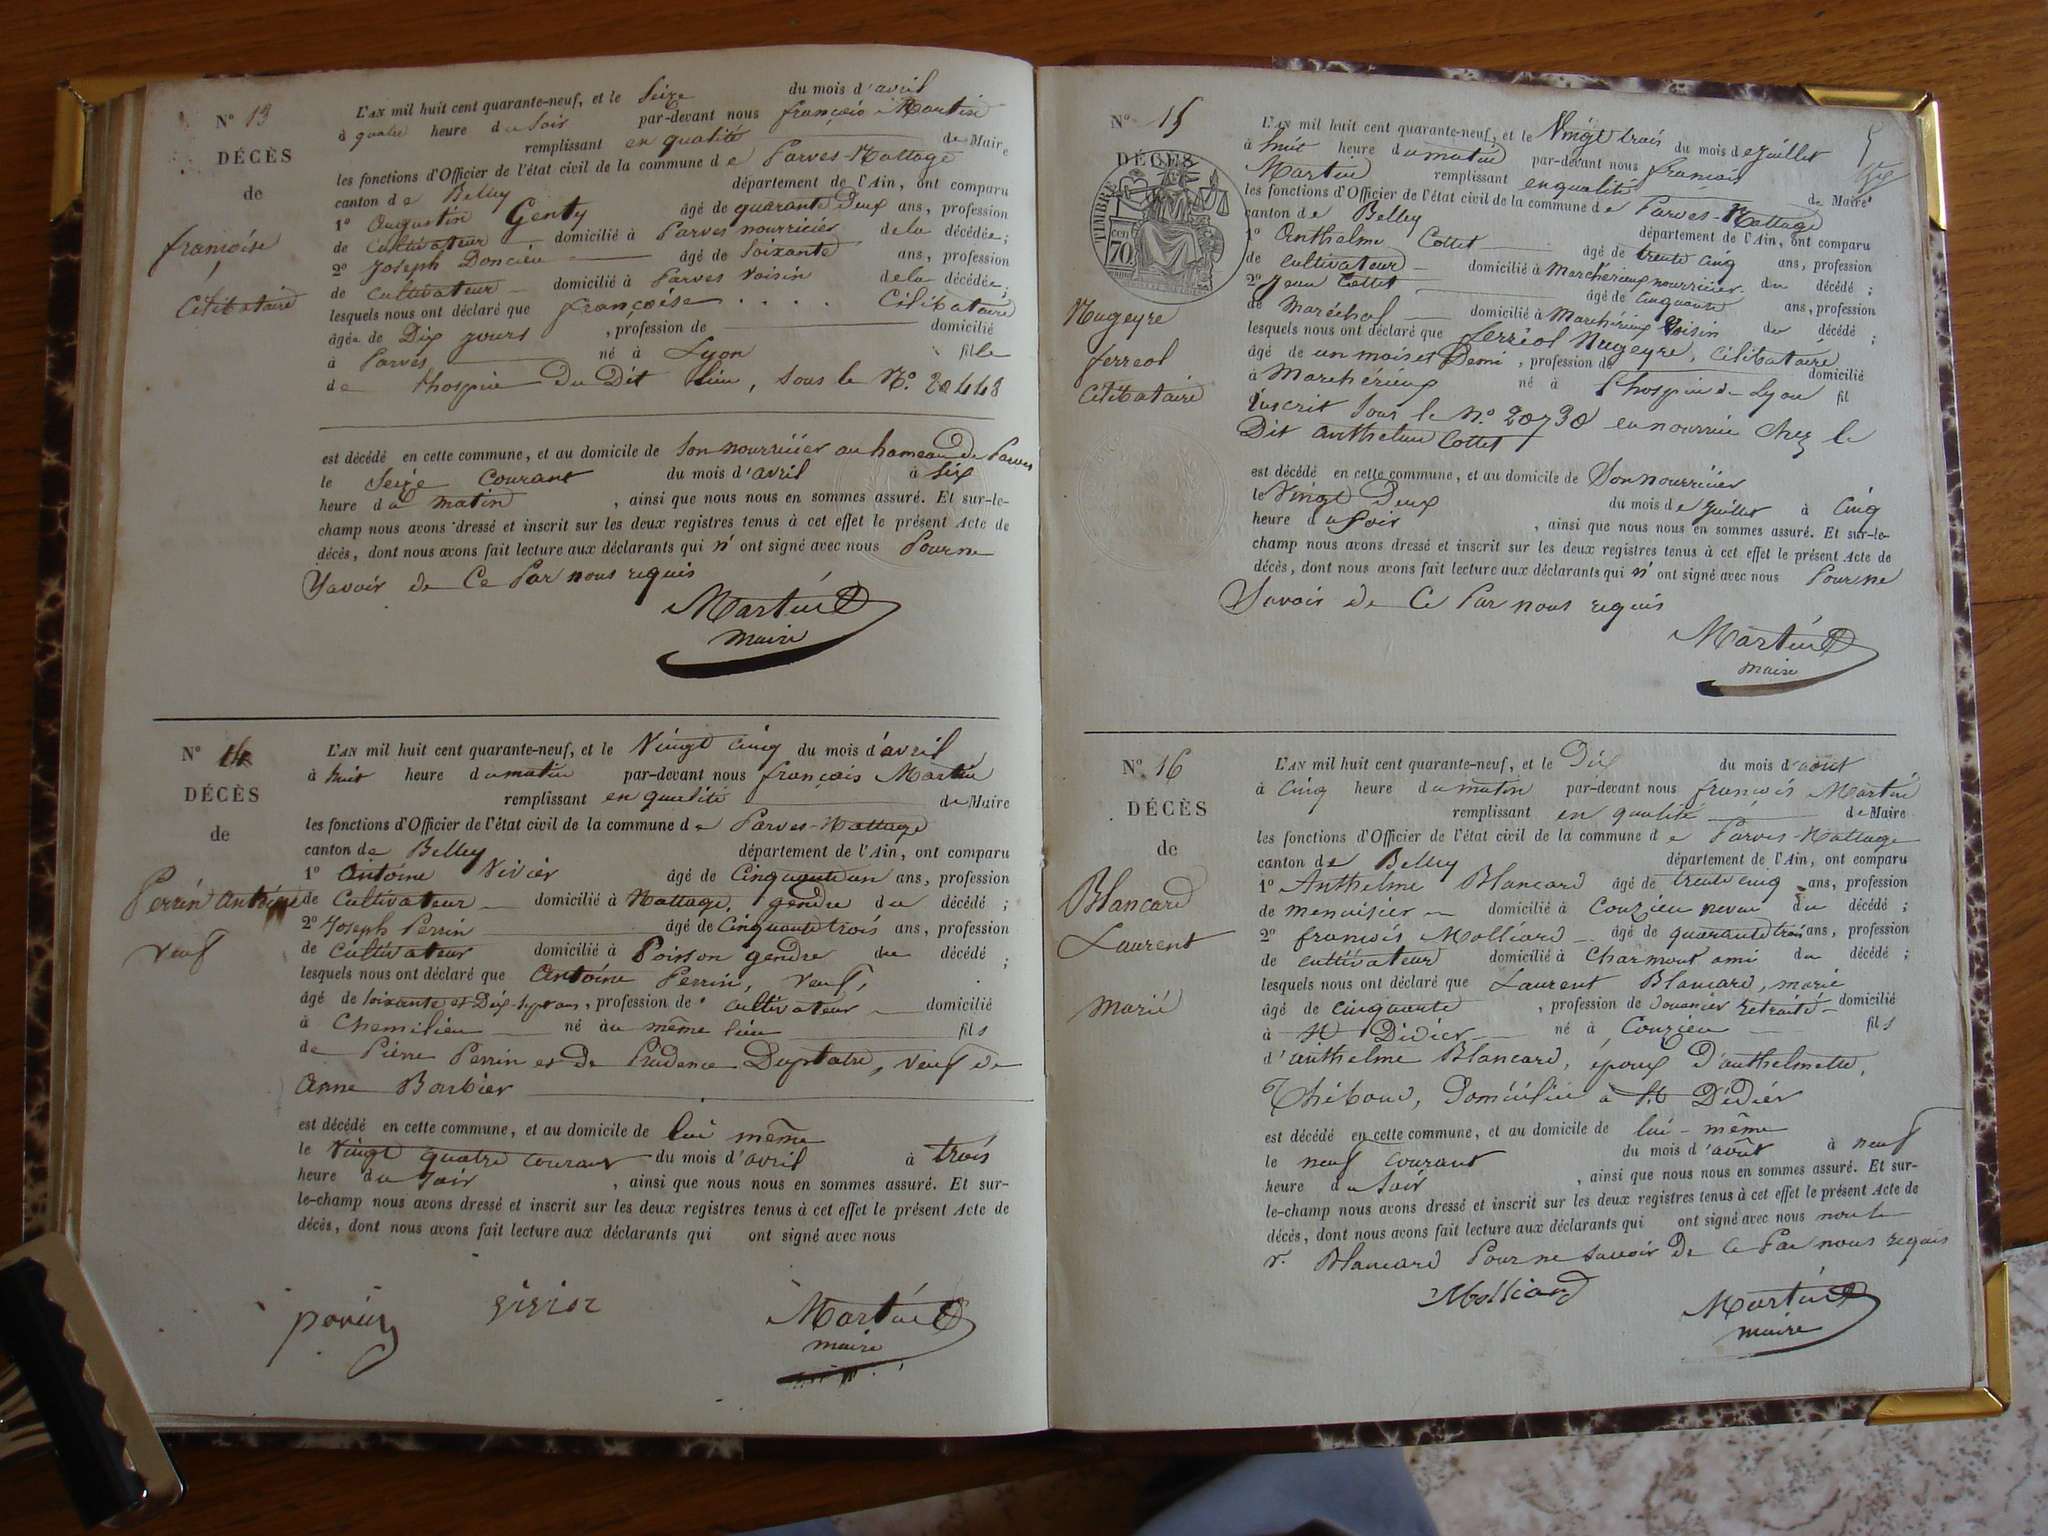 N° 13
DÉCÈS
de
françoise
Célibataire
L'AN mil huit cent quarante-neuf, et le Seize du mois d'avril
à quatre heure du Soir par-devant nous françois Martin
remplissant en qualité de Maire
les fonctions d'Officier de l'état civil de la commune de Parves-Nattage
canton de Belley département de l'Ain, ont comparu
1° Augustin Genty âgé de quarante Deux ans, profession
de Cultivateur domicilié à Parves nourricier de la décédée;
2° Joseph Doncieu âgé de Soixante ans, profession
de Cultivateur domicilié à Parves Voisin de la décédée;
lesquels nous ont déclaré que françoise . . . . Célibataire
âgée de Dix jours , profession de domicilié
à Parves né à Lyon fille
de l'hospice Du Dit lieu, sous le N°. 20443
est décédé en cette commune, et au domicile de Son nourricier au hameau de Parves
le Seize courant du mois d'avril à Six
heure du matin , ainsi que nous nous en sommes assuré. Et sur-le-
champ nous avons dressé et inscrit sur les deux registres tenus à cet effet le présent Acte de
décès, dont nous avons fait lecture aux déclarants qui n' ont signé avec nous Pour ne
Savoir de Ce Par nous requis
Martin
maire
N° 14
DÉCÈS
de
Perrin Antoine
Veuf
L'AN mil huit cent quarante-neuf, et le Vingt cinq du mois d'avril
à huit heure du matin par-devant nous françois Martin
remplissant en qualité de Maire
les fonctions d'Officier de l'état civil de la commune de Parves-Nattage
canton de Belley département de l'Ain, ont comparu
1° Antoine Vivier âgé de Cinquante un ans, profession
de Cultivateur domicilié à Nattage, gendre du décédé;
2° Joseph Perrin âgé de Cinquante trois ans, profession
de Cultivateur domicilié à Poisson gendre du décédé;
lesquels nous ont déclaré que Antoine Perrin, Veuf,
âgé de Soixante et Dix-Sept ans, profession de Cultivateur domicilié
à Chemilieu né au même lieu fils
de Pierre Perrin et De Prudence, Veuf de
Anne Barbier
est décédé en cette commune, et au domicile de lui même
le Vingt quatre courant du mois d'avril à trois
heure du Soir , ainsi que nous nous en sommes assuré. Et sur-
le-champ nous avons dressé et inscrit sur les deux registres tenus à cet effet le présent Acte de
décès, dont nous avons fait lecture aux déclarants qui ont signé avec nous
Martin
maire
N° 15
5
DÉCÈS
TIMBRE
cen
70.
Nugeyre
ferreol
Célibataire
L'AN mil huit cent quarante-neuf, et le Vingt trois du mois de juillet
à huit heure du matin par-devant nous françois
Martin remplissant en qualité de Maire
les fonctions d'Officier de l'état civil de la commune de Parves-Nattage
canton de Belley département de l'Ain, ont comparu
1° Anthelme Cottet âgé de trente cinq ans, profession
de cultivateur domicilié à Marchérieux nourricier du décédé;
2° Jean Cottet âgé de Cinquante ans, profession
de Maréchal domicilié à Marchérieux Voisin du décédé;
lesquels nous ont déclaré que ferréol Nugeyre, célibataire
âgé de un mois et Demi, profession de domicilié
à Marchérieux né à l'hospice de Lyon fil
Inscrit Sous le N°. 20730 en nourrice chez le
Dit Anthelme Cottet
est décédé en cette commune, et au domicile de Son nourricier
le Vingt Deux du mois de juillet à Cinq
heure du Soir , ainsi que nous nous en sommes assuré. Et sur-le-
champ nous avons dressé et inscrit sur les deux registres tenus à cet effet le présent Acte de
décès, dont nous avons fait lecture aux déclarants qui n' ont signé avec nous Pour ne
Savoir de Ce Par nous requis
Martin
maire
N° 16
DÉCÈS
de
Blancard
Laurent
Marié
L'AN mil huit cent quarante-neuf, et le Dix du mois d'août
à Cinq heure du matin par-devant nous françois Martin
remplissant en qualité de Maire
les fonctions d'Officier de l'état civil de la commune de Parves-Nattage
canton de Belley département de l'Ain, ont comparu
1° Anthelme Blancard âgé de trente cinq ans, profession
de menuisier domicilié à Couzieu neveu du décédé;
2° françois Molliard âgé de quarante trois ans, profession
de cultivateur domicilié à Charmont ami du décédé;
lesquels nous ont déclaré que Laurent Blancard, marié
âgé de cinquante , profession de Douanier retraité domicilié
à St Didier né à Couzieu fils
d'anthelme Blancard, époux d'anthelmette,
Thiboud, Domicilié à St Didier
est décédé en cette commune, et au domicile de lui-même
le neuf courant du mois d'août à neuf
heure du Soir , ainsi que nous nous en sommes assuré. Et sur-
le-champ nous avons dressé et inscrit sur les deux registres tenus à cet effet le présent Acte de
décès, dont nous avons fait lecture aux déclarants qui ont signé avec nous non le
r. Blancard Pour ne savoir de Ce Par nous requis
Molliard
Martin
maire